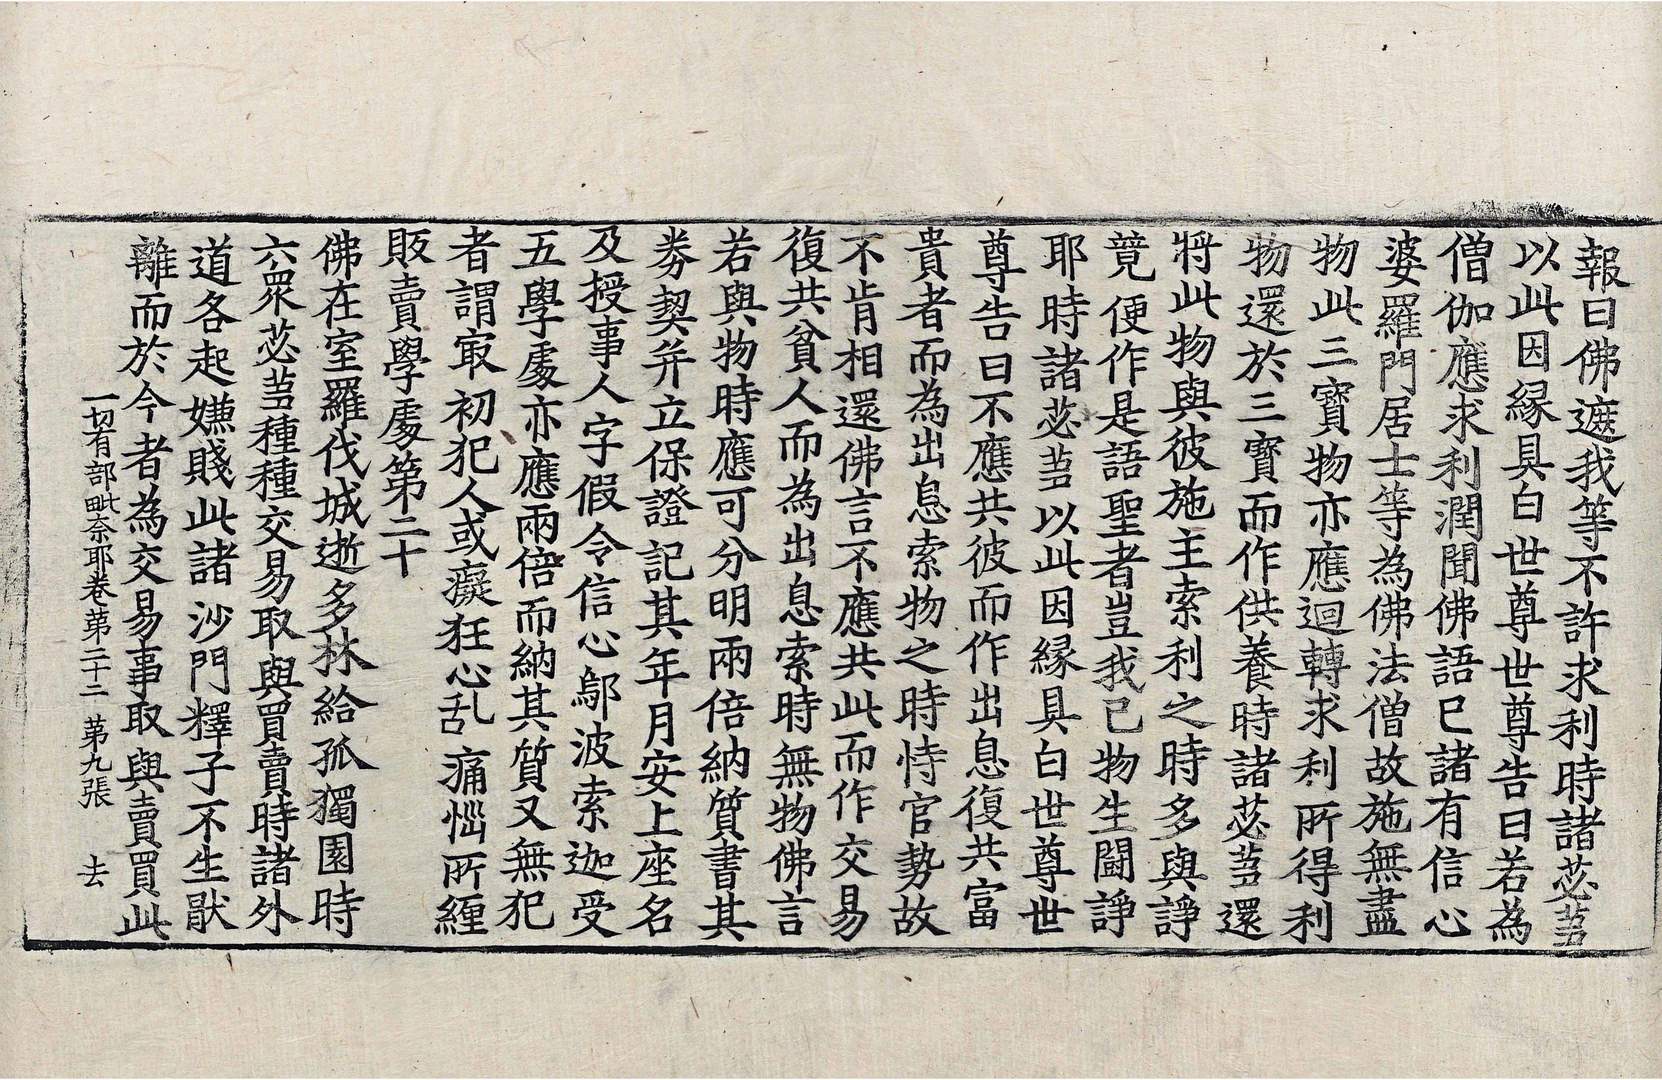 報曰佛遮我等不許求利時諸苾蒭
以此因緣具白世尊世尊告曰若為
僧伽應求利潤聞佛語已諸有信心
婆羅門居士等為佛法僧故施無盡
物此三寶物亦應迴轉求利所得利
物還於三寶而作供養時諸苾蒭還
將此物與彼施主索利之時多與諍
競便作是語聖者豈我已物生鬪諍
耶時諸苾蒭以此因緣具白世尊世
尊告曰不應共彼而作出息復共富
貴者而為出息索物之時恃官勢故
不肯相還佛言不應共此而作交易
復共貧人而為出息索時無物佛言
若與物時應可分明兩倍納質書其
券契并立保證記其年月安上座名
及授事人字假令信心鄔波索迦受
五學處亦應兩倍而納其質又無犯
者謂㝡初犯人或癡狂心乱痛惱所纏
販賣學處第二十
佛在室羅伐城逝多林給孤獨園時
六眾苾蒭種種交易取與買賣時諸外
道各起嫌賤此諸沙門釋子不生猒
離而於今者為交易事取與賣買此
一切有部毗奈耶卷第二十二 第九張 去